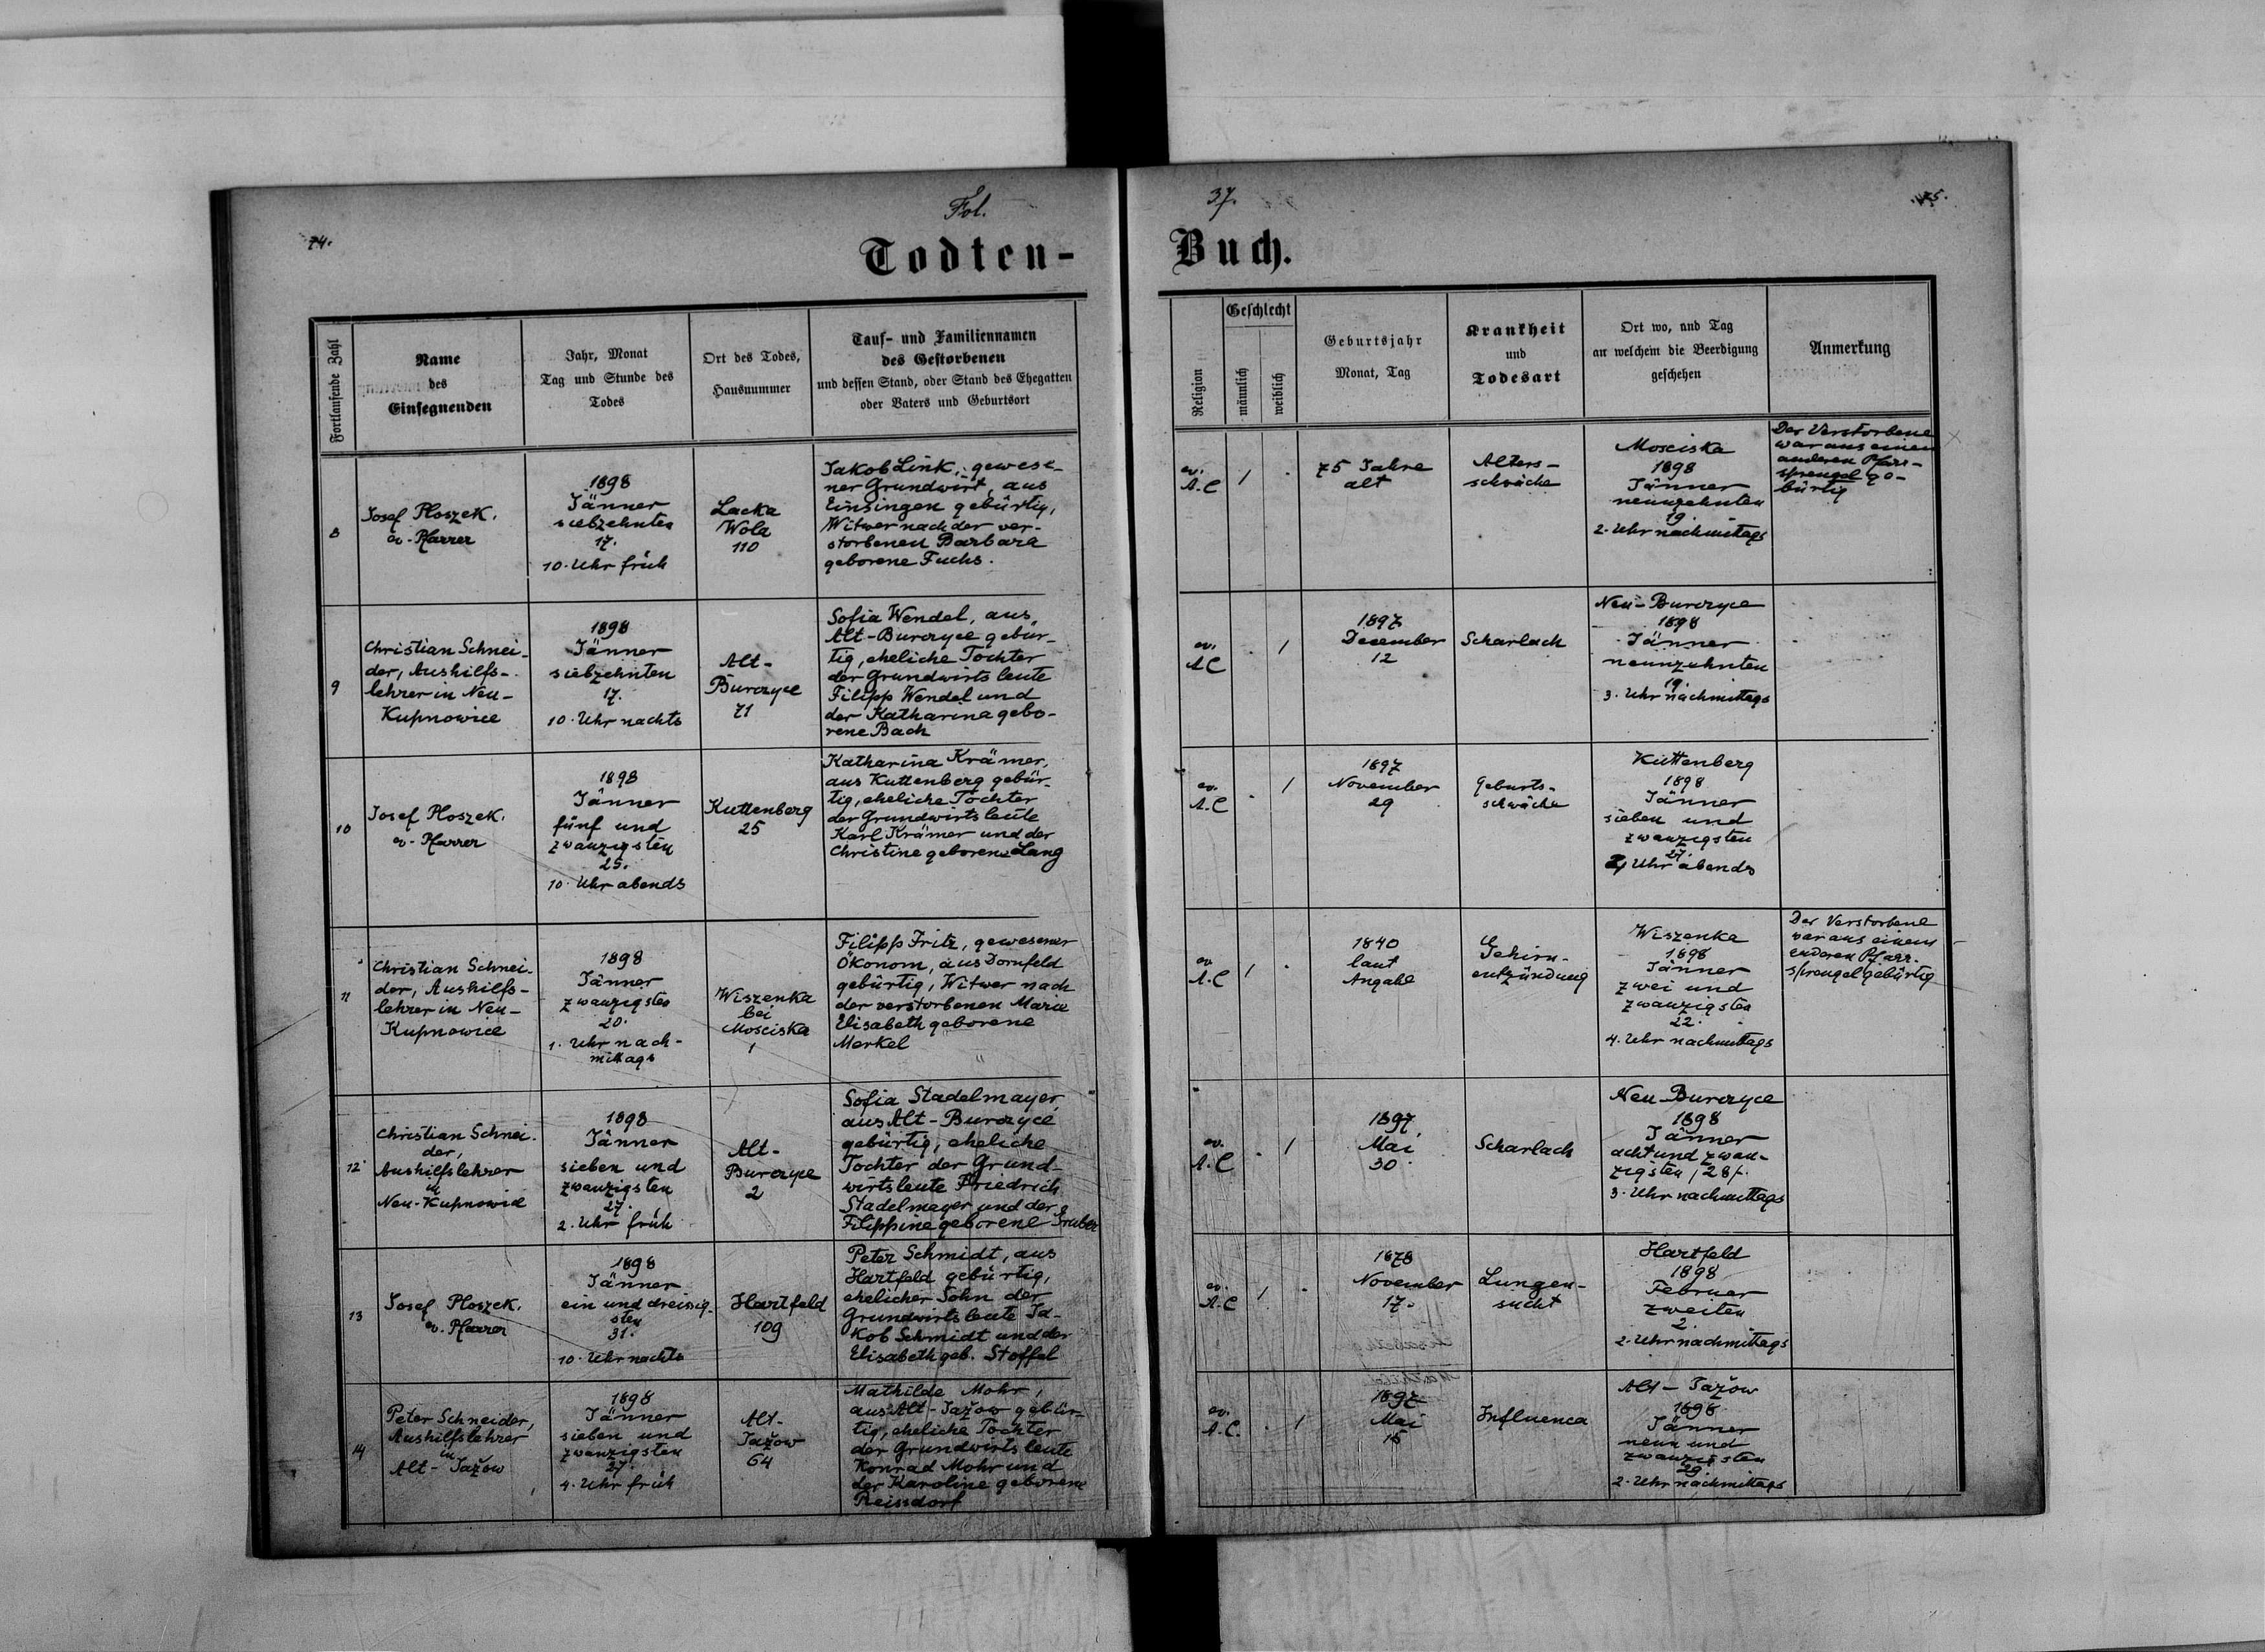 74.
Fol.
37.
75.
Todten-
Buch.
Fortlaufende Zahl
Name
des
Einsegnenden
Jahr, Monat
Tag und Stunde des
Todes
Ort des Todes,
Hausnummer
Tauf- und Familiennamen
des Gestorbenen
und dessen Stand, oder Stand des Ehegatten
oder Vaters und Geburtsort
Religion
Geschlecht
männlich
weiblich
Geburtsjahr
Monat, Tag
Krankheit
und
Todesart
Ort wo, und Tag
an welchem die Beerdigung
geschehen
Anmerkung
8
Josef Ploszek.
ev. Pfarrer
1898
Jänner
siebzehnten
17.
10. Uhr früh
Lacka
Wola
110
Jakob Link, gewese-
ner Grundwirt, aus
Einsingen gebürtig,
Witwer nach der ver-
storbenen Barbara
geborene Fuchs.
ev.
A.C
/
.
75 Jahre
alt
Alters-
schwäche
Mosciska
1898
Jänner
neunzehnten
19.
2. Uhr nachmittags
Der Verstorbene
war aus einem
anderen Pfarr-
sprengel ge-
bürtig
9
Christian Schnei-
der, Aushilfs-
lehrer in Neu-
Kupnowice
1898
Jänner
siebzehnten
17.
10. Uhr nachts
Alt-
Burczyce
71
Sofia Wendel, aus
Alt-Burczyce gebür-
tig, eheliche Tochter
der Grundwirtsleute
Filipp Wendel und
der Katharina gebo-
rene Bach
ev.
AC
.
/
1897
December
12
Scharlach
Neu-Burczyce
1898
Jänner
neunzehnten
19.
3. Uhr nachmittags
10
Josef Ploszek.
ev. Pfarrer
1898
Jänner
fünf und
zwanzigsten
25.
10. Uhr abends
Kuttenberg
25
Katharina Krämer,
aus Kuttenberg gebür-
tig, eheliche Tochter
der Grundwirtsleute
Karl Krämer und der
Christine geborene Lang
ev.
A.C
.
/
1897
November
29
Geburts-
schwäche
Kuttenberg
1898
Jänner
sieben und
zwanzigsten
27.
Uhr abends
11
Christian Schnei-
der, Aushilfs-
lehrer in Neu-
Kupnowice
1898
Jänner
zwanzigsten
20.
1. Uhr nach-
mittags
Wiszenka
bei
Mosciska
1
Filipp Fritz, gewesener
Ökonom, aus Dornfeld
gebürtig, Witwer nach
der verstorbenen Maria
Elisabeth geborene
Merkel
ev
A.C
/
.
1840
laut
Angabe
Gehirn-
entzündung
Wiszenka
1898
Jänner
zwei und
zwanzigsten
22.
4. Uhr nachmittags
Der Verstorbene
war aus einem
anderen Pfarr-
sprengel gebürtig
12
Christian Schnei-
der,
Aushilfslehrer
in
Neu-Kupnowice
1898
Jänner
sieben und
zwanzigsten
27.
2. Uhr früh
Alt-
Burczyce
2
Sofia Stadelmayer,
aus Alt-Burczyce
gebürtig, eheliche
Tochter der Grund-
wirtsleute Friedrich
Stadelmayer und der
Filippine geborene Gruber
ev.
A.C
.
/
1897
Mai
30.
Scharlach
Neu-Burczyce
1898
Jänner
acht und zwan-
zigsten /28/.
3. Uhr nachmittags
13
Josef Ploszek.
ev. Pfarrer
1898
Jänner
ein und dreissig-
sten
31.
10. Uhr nachts
Hartfeld
109
Peter Schmidt, aus
Hartfeld gebürtig,
ehelicher Sohn der
Grundwirtsleute Ja-
kob Schmidt und der
Elisabeth geb. Stoffel
ev.
A.C
/
.
1878
November
17.
Lungen-
sucht
Hartfeld
1898
Februar
zweiten
2.
2. Uhr nachmittags
14
Peter Schneider,
Aushilfslehrer
in
Alt-Jażow
1898
Jänner
sieben und
zwanzigsten
27.
4. Uhr früh
Alt-
Jażow
64
Mathilde Mohr,
aus Alt-Jażow gebür-
tig, eheliche Tochter
der Grundwirtsleute
Konrad Mohr und
der Karoline geborene
Reissdorf
ev.
A.C.
.
/
1897
Mai
15
Influenca
Alt-Jażow
1898
Jänner
neun und
zwanzigsten
29.
2. Uhr nachmittags